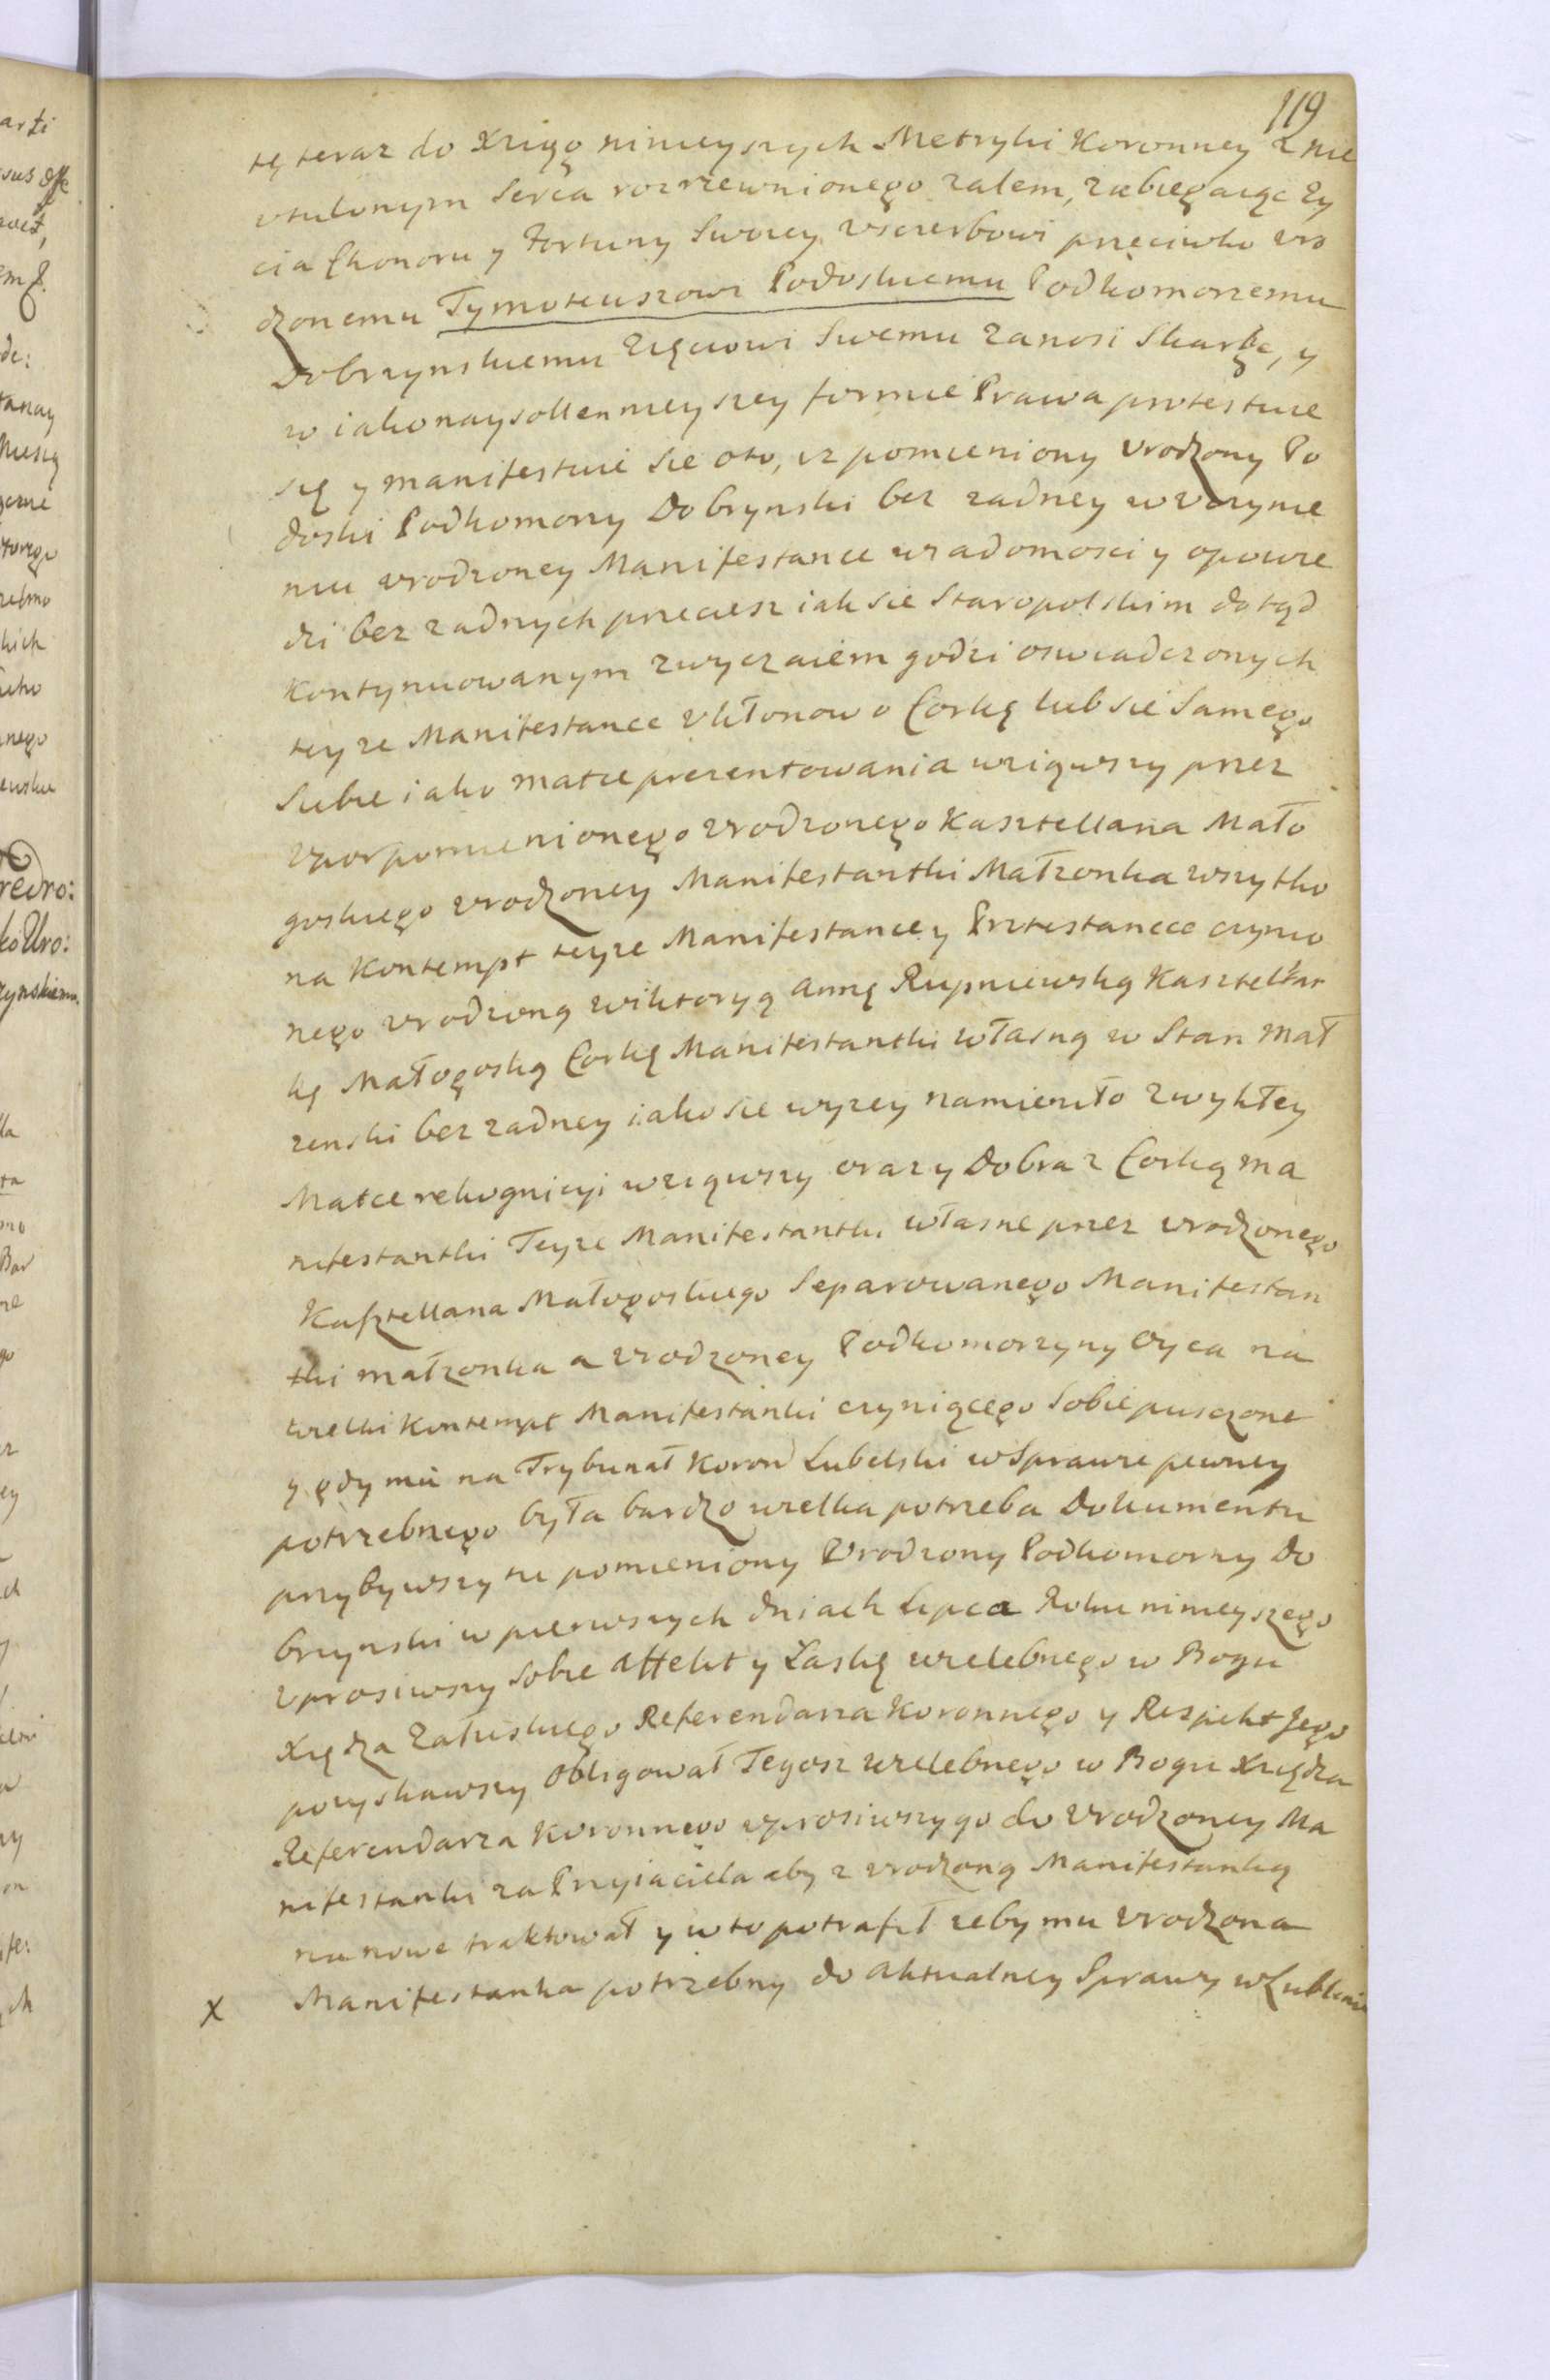 119
tę teraz do Xięgo ninieyszych Metryki Koronney z nie
vtulonym Serca rozrzewnionego zalem, zabiegaiąc Zy
cia Ehonoru y Fortuny Swoiey vszczerbowi przeciwko vro
dzonemu Tymoteuszowi Podoskiemu Podkomorzemu
Dobrzynskiemu Zięciowi Swemu zanosi Skargę, y
w iako naysollenneyszey formie Prawa protestuie
się y manifestuie sie oto, iz pomieniony vrodzony Po
doski Podkomorzy Dobrynski bez zadney w vczynie
niu vrodzoney Manifestance wiadomosci y opowie
dzi bez zadnych przeciesz iak sie Staropolskim dotąd
kontynuowanym zwyczaiem godzi oswiadczonych
teyze Manifestance vkłonow o Corkę lub sie Samego
Siebie iako matce prezentowania wziąwszy przez
vporpomienionego vrodzonego Kasztellana Mało
goskiego vrodzoney Manifestantki Małzonka wszytko
na Kontempt teyze Manifestance y Protestancce czynio
nego vrodzoną Wiktoryą Annę Rupniewską Kasztellan
kę Małogoską Corkę Manifestantki własną w Stan mał
zenski bez zadney iako sie wyzey namieniło zwykłey
Matce rekognicyi wziąwszy oraz y Dobra z Corką ma
nifestantki Teyze Manifestantki własne przez vrodzonego
Kasztellana Małogoskiego Separowanego Manifestan
tki małzonka a vrodzoney Podkomorzyny Oyca na
wielki Kontempt Manifestanki czyniącego Sobie pusczone
y gdy mu na Trybunał Koron Lubelski w Sprawie pewney
potrzebnego była bardzo wielka potrzeba Dokumentu
przybywszy tu pomieniony Vrodzony Podkomorzy Do
brzynski w pierwszych dniach Lipca Roku ninieyszego
vprosiwszy Sobie affekt y Łaskę wielebnego w Bogu
Xiędza Załuskiego Referendarza Koronnego y Respekt Jego
pozyskawszy Obligował Tegosz wielebnego w Bogu Xiędza
Referendarza Koronnego vprosiwszy go do vrodzoney Ma
nifestanki za Przyiaciela aby z vrodzoną Manifestanką
na nowe traktował y w to potrafił zeby mu vrodzona
X Manifestanka potrzebny do aktualney Sprawy w Lublinie